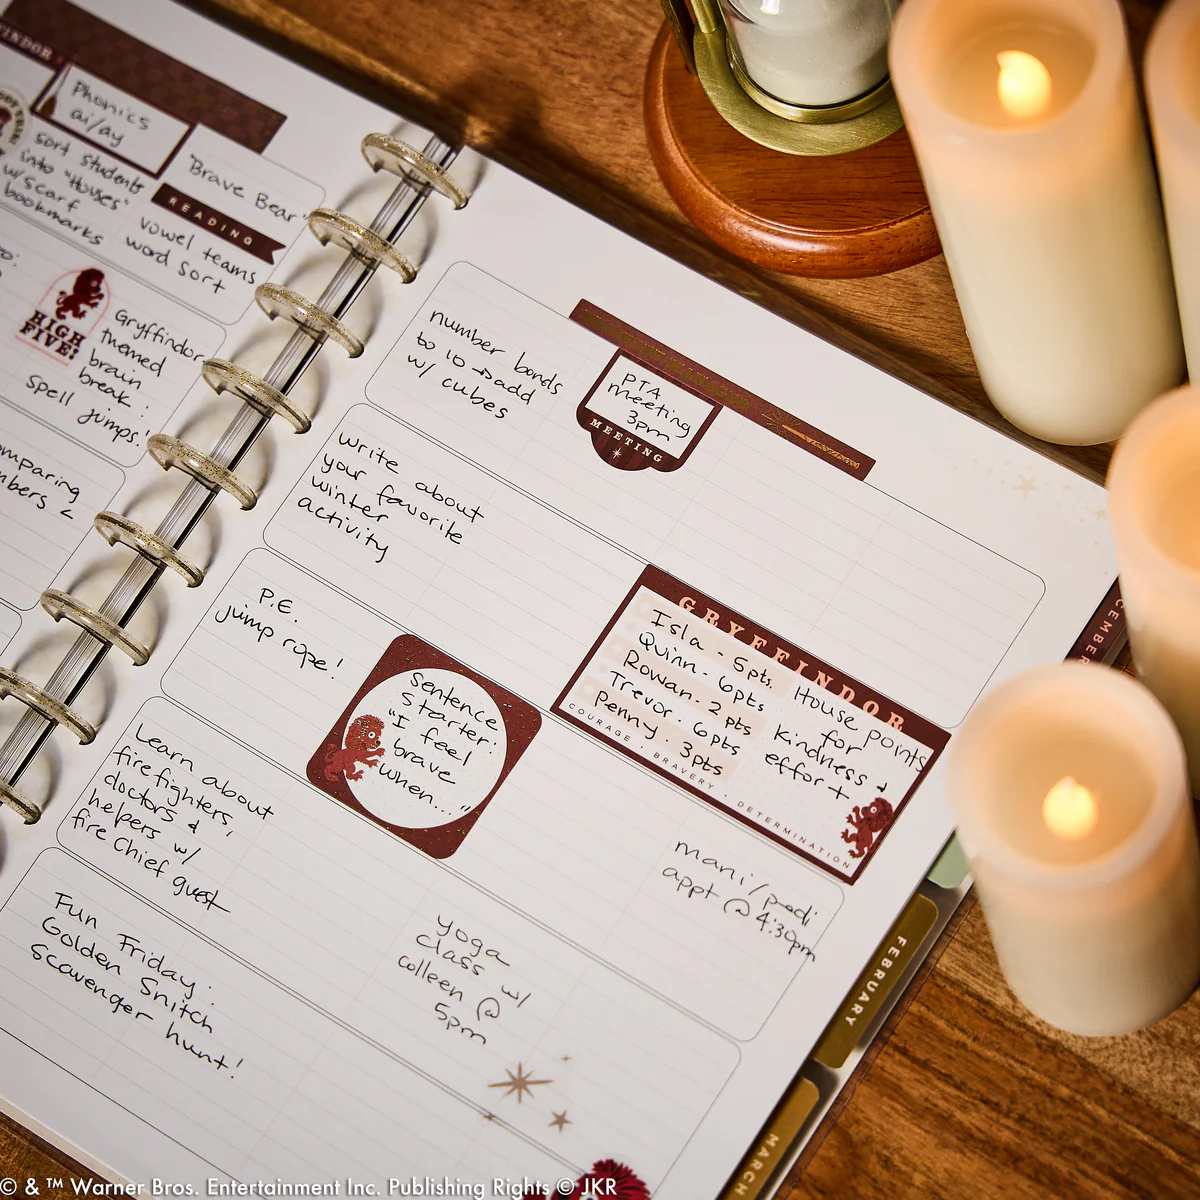 Phonics
ai/ay
sort students
into "Houses"
w/scarf
bookmarks
"Brave Bear"
READING
vowel teams
word sort
HIGH
FIVE!
Gryffindor
themed
brain
break:
spell jumps!
number bonds
to 10 → add
w/ cubes
PTA
meeting
3pm
MEETING
write about
your favorite
winter
activity
P.E.
jump rope!
Sentence
Starter:
"I feel
brave
when..."
GRYFFINDOR
Isla - 5pts.
Quinn - 6pts
Rowan - 2 pts
Trevor - 6pts
Penny - 3pts
House points
for
kindness &
effort
COURAGE · BRAVERY · DETERMINATION
Learn about
firefighters,
doctors &
helpers w/
fire chief guest
mani/pedi
appt @ 4:30pm
Fun Friday:
Golden Snitch
Scavenger hunt!
yoga
class w/
colleen @
5pm
FEBRUARY
MARCH
© & ™ Warner Bros. Entertainment Inc. Publishing Rights © JKR